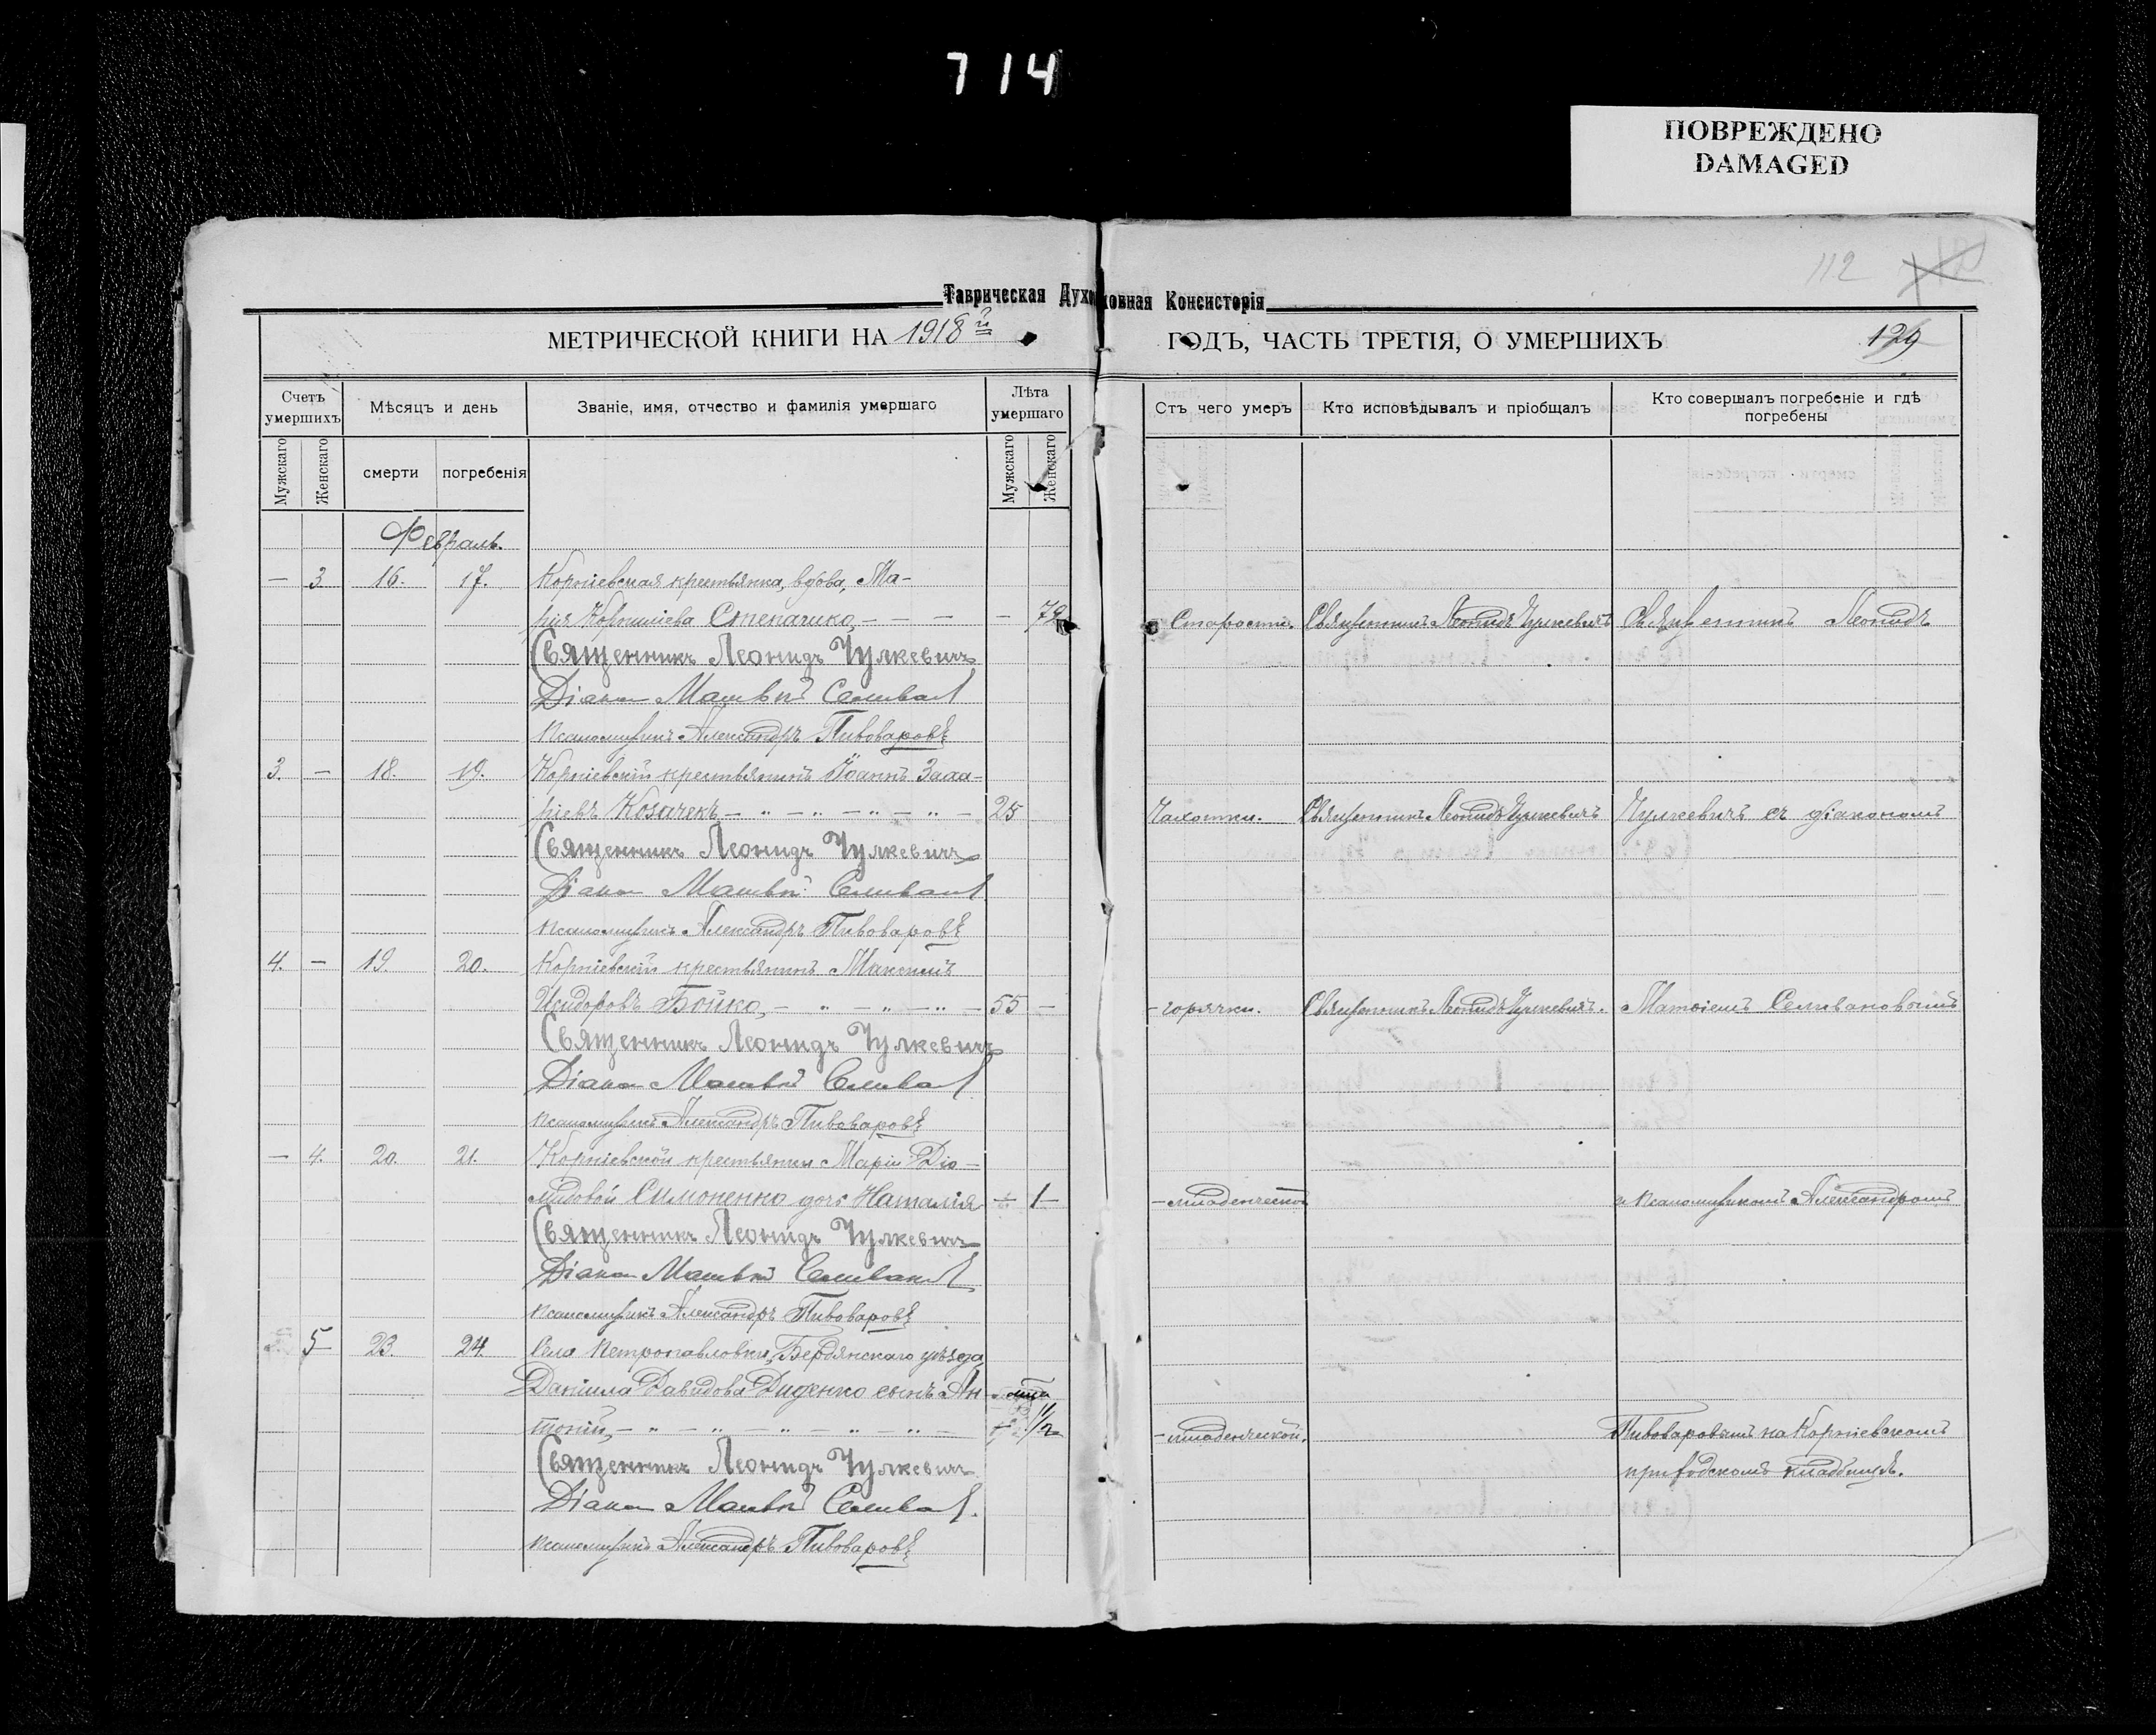 714
ПОВРЕЖДЕНО
DAMAGED
112
Таврическая Духовная Консисторія
МЕТРИЧЕСКОЙ КНИГИ НА 1918й ГОДЪ, ЧАСТЬ ТРЕТІЯ, О УМЕРШИХЪ 129
Счетъ умершихъ
Мѣсяцъ и день
Званіе, имя, отчество и фамилія умершаго
Лѣта умершаго
Отъ чего умеръ
Кто исповѣдывалъ и пріобщалъ
Кто совершалъ погребеніе и гдѣ погребены
Мужскаго Женскаго смерти погребенія Мужскаго Женскаго
Февраль.
— 3 16. 17. Корніевская крестьянка, вдова, Ма-
рія Корниліева Степаненко, — — — — 79 Старости. Священникъ Леонидъ Чулкевичъ Священникъ Леонидъ
Священникъ Леонидъ Чулкевичъ
Діаконъ Матвѣй Селиванов
Псаломщикъ Александръ Пивоваровъ
3. — 18. 19. Корніевскій крестьянинъ Іоаннъ Заха-
ріевъ Козачекъ — " — " — " — " — 25 Чахотки. Священникъ Леонидъ Чулкевичъ Чулкевичъ съ діакономъ
Священникъ Леонидъ Чулкевичъ
Діаконъ Матвѣй Селиванов
Псаломщикъ Александръ Пивоваровъ
4. — 19. 20. Корніевскій крестьянинъ Максимъ
Исидоровъ Бойко, — " — " — " — 55 — горячки. Священникъ Леонидъ Чулкевичъ. Матѳіемъ Селивановымъ
Священникъ Леонидъ Чулкевичъ
Діаконъ Матвѣй Селиванов
Псаломщикъ Александръ Пивоваровъ
— 4. 20. 21. Корніевской крестьянки Маріи Діо-
мидовой Симоненко дочь Наталія — 1 — младенческой и псаломщикомъ Александромъ
Священникъ Леонидъ Чулкевичъ
Діаконъ Матвѣй Селиванов
Псаломщикъ Александръ Пивоваровъ
5 23. 24. Села Петропавловки, Бердянскаго уѣзда,
Даніила Давидова Диденко сынъ Ан-
тоній, — " — " — " — " — " — 1/2 — младенческой. Пивоваровымъ на Корніевскомъ
Священникъ Леонидъ Чулкевичъ приходскомъ кладбищѣ.
Діаконъ Матвѣй Селиванов.
Псаломщикъ Александръ Пивоваровъ